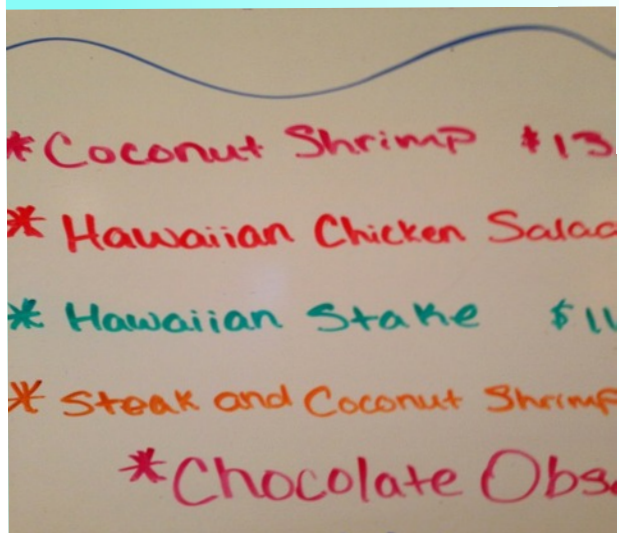 *Coconut Shrimp $13
* Hawaiian Chicken Salad
* Hawaiian Stake $11
* Steak and Coconut Shrimp
*Chocolate Obs